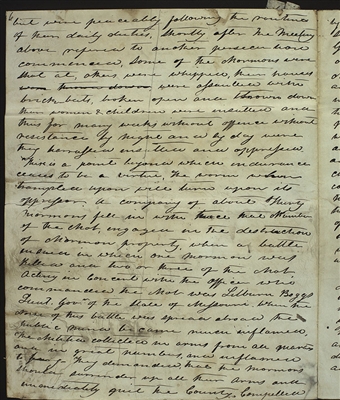 6
but were peaceably following the routines
of their daily duties. Shortly after the Meeting
above refered to another persecution
commenced, Some of the Mormons were
shot at, others were whipped, their houses
were thrown down assaulted with
brick bats, broken open and thrown down
their women & children were insulted and
this for many weeks without offence without
resistance by night and by day were
they harrassed and oppressed.
There is a point beyond which endurance
ceases to be a virtue. The worm when
trampled upon will turn upon its
oppressor. A company of about thirty
Mormons fell in with twice that Number
of the Mob, engaged in the destruction
of Mormon property, when a battle
ensued in which one Mormon was
killed and two or three of the Mob
Acting in Concert with the officer who
commanded the Mob was Lilburn Boggs
Lieut. Gov. of the State of Missouri. When the
news of this battle was spread abroad the
public mind became much inflamed.
The militia collected in arms from all quarts
and in great numbers, and inflamed
to fury. They demanded that the Mormons
should surrender up all their arms and
immediately quit the County. Compelled